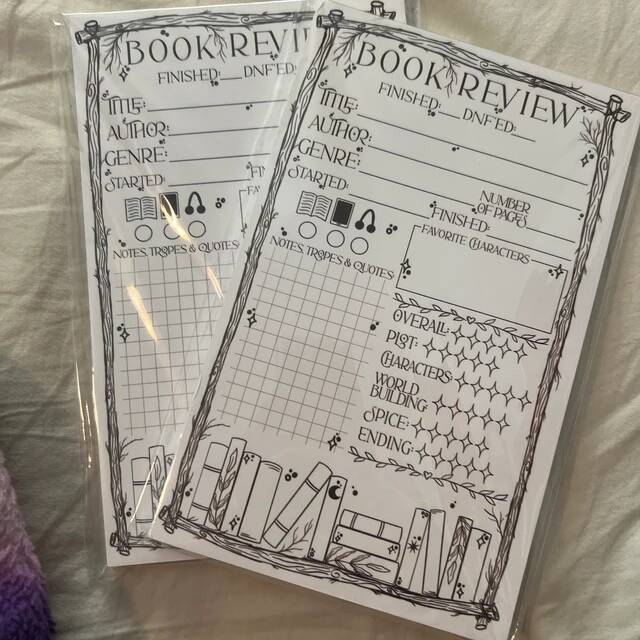 BOOK REVI
FINISHED:___ DNF'ED:
TITLE:
AUTHOR:
GENRE:
STARTED:
FIN
FA
NOTES, TROPES & QUOTES
BOOK REVIEW
FINISHED:___ DNF'ED:___
TITLE:
AUTHOR:
GENRE:
NUMBER
OF PAGES
STARTED:
FINISHED:
FAVORITE CHARACTERS
NOTES, TROPES & QUOTES
OVERALL:
PLOT:
CHARACTERS:
WORLD
BUILDING:
SPICE:
ENDING: